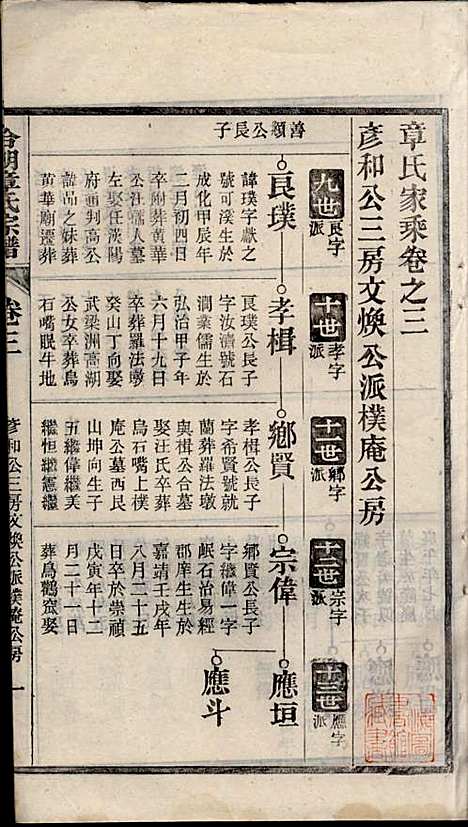 章氏家乘卷之三
彥和公三房文煥公派樸庵公房
九世
良字
派
十世
孝字
派
十一世
鄉字
派
十二世
宗字
派
十三世
應字
派
善頴公長子
良璞
孝楫
鄉賢
宗偉
應垣
應斗
諱璞字獻之
號可溪生於
成化甲辰年
二月初四日
卒附葬黃華
公汪孺人墓
左娶任漢陽
府通判高公
諱品之妹葬
黃華廟遷葬
良璞公長子
字汝濟號石
澗業儒生於
弘治甲子年
六月十九日
卒葬羅法墩
癸山丁向娶
武梁洲高湖
公女卒葬烏
石嘴眠牛地
孝楫公長子
字希賢號就
蘭葬羅法墩
與楫公合墓
娶汪氏卒葬
烏石嘴上樸
庵公墓西艮
山坤向生子
五繼偉繼美
繼恒繼憲繼
鄉賢公長子
字繼偉一字
岷石治易經
郡庠生生於
嘉靖壬戌年
八月二十五
日卒於崇禎
戊寅年十二
月二十一日
葬鳥鶴窩娶
章氏宗譜
卷三
彥和公三房文煥公派樸庵公房
一